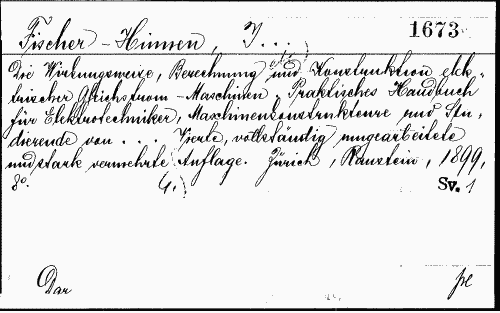 Fischer-Hinnen, J...
1673
Die Wirkungsweise, Berechnung und Konstruktion elek-
trischer Gleichstrom-Maschinen. Praktisches Handbuch
für Elektrotechniker, Maschinenkonstrukteure und Stu-
dierende von... Vierte, vollständig umgearbeitete
und stark vermehrte Auflage. Zürich, Raustein, 1899,
8o. Sv. 1
Dar